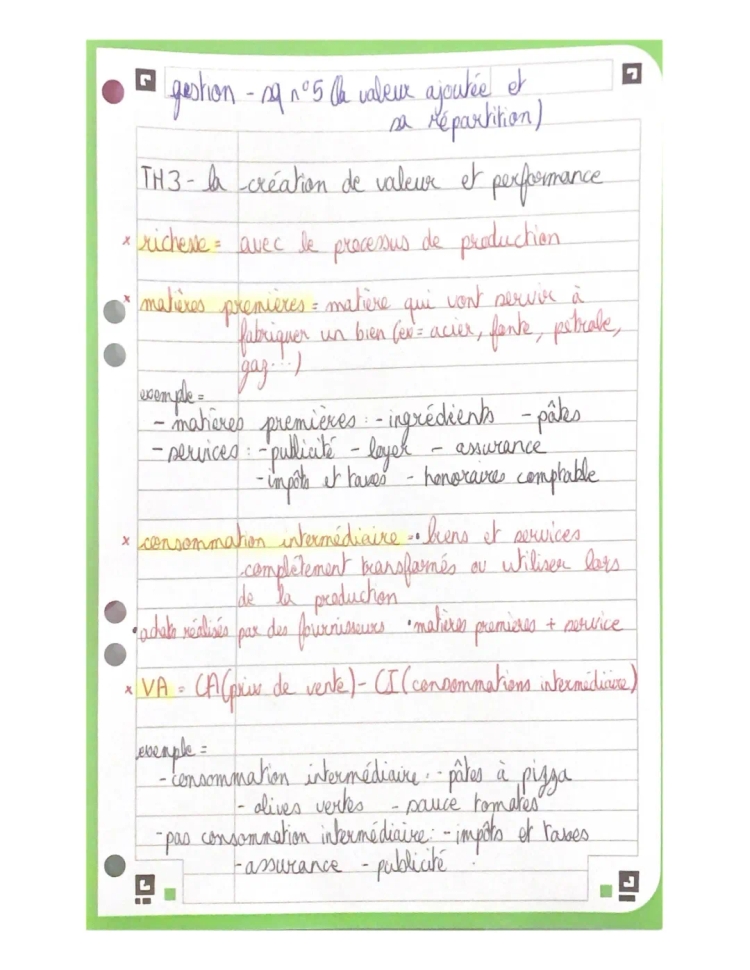 gestion - sq n°5 (la valeur ajoutée et
sa répartition)
TH3 - la création de valeur et performance
x richesse = avec le processus de production
x matières premières = matière qui vont servir à
fabriquer un bien (ex = acier, fonte, pétrole,
gaz...)
exemple =
- matières premières : - ingrédients - pâtes
- services : - publicité - loyer - assurance
- impôts et taxes - honoraires comptable
x consommation intermédiaire = • biens et services
complètement transformés ou utiliser lors
de la production
• achats réalisés par des fournisseurs • matières premières + service
x VA = CA (prix de vente) - CI (consommations intermédiaire)
exemple =
- consommation intermédiaire : - pâtes à pizza
- olives vertes - sauce tomates
- pas consommation intermédiaire : - impôts et taxes
- assurance - publicité